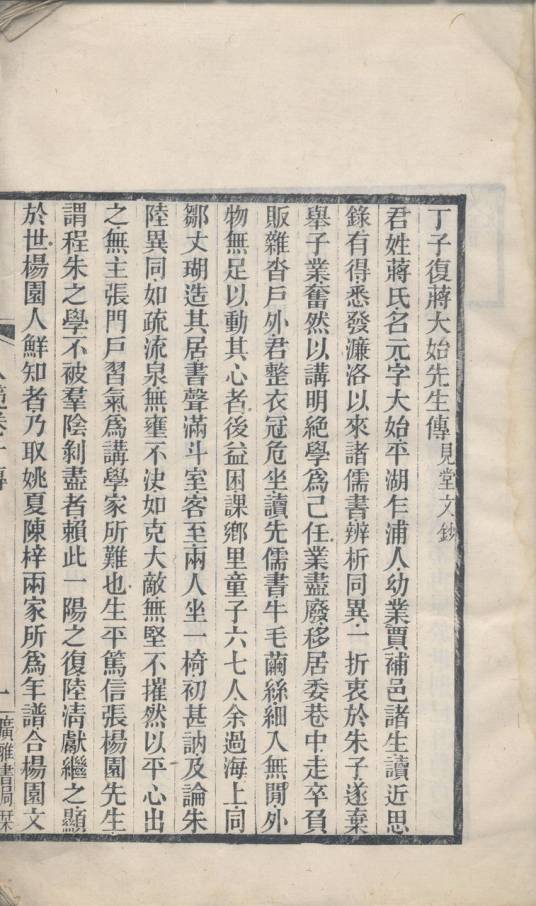 丁子復蔣大始先生傳見堂文鈔
君姓蔣氏名元字大始平湖乍浦人幼業賈補邑諸生讀近思
錄有得悉發濂洛以來諸儒書辨析同異一折衷於朱子遂棄
舉子業奮然以講明絕學爲己任業盡廢移居委巷中走卒負
販雜沓戶外君整衣冠危坐讀先儒書牛毛繭絲細入無閒外
物無足以動其心者後益困課鄉里童子六七人余過海上同
鄒丈瑚造其居書聲滿斗室客至兩人坐一椅初甚訥及論朱
陸異同如疏流泉無壅不決如克大敵無堅不摧然以平心出
之無主張門戶習氣爲講學家所難也生平篤信張楊園先生
謂程朱之學不被羣陰剝盡者賴此一陽之復陸清獻繼之顯
於世楊園人鮮知者乃取姚夏陳梓兩家所爲年譜合楊園文
一 廣雅書局栞